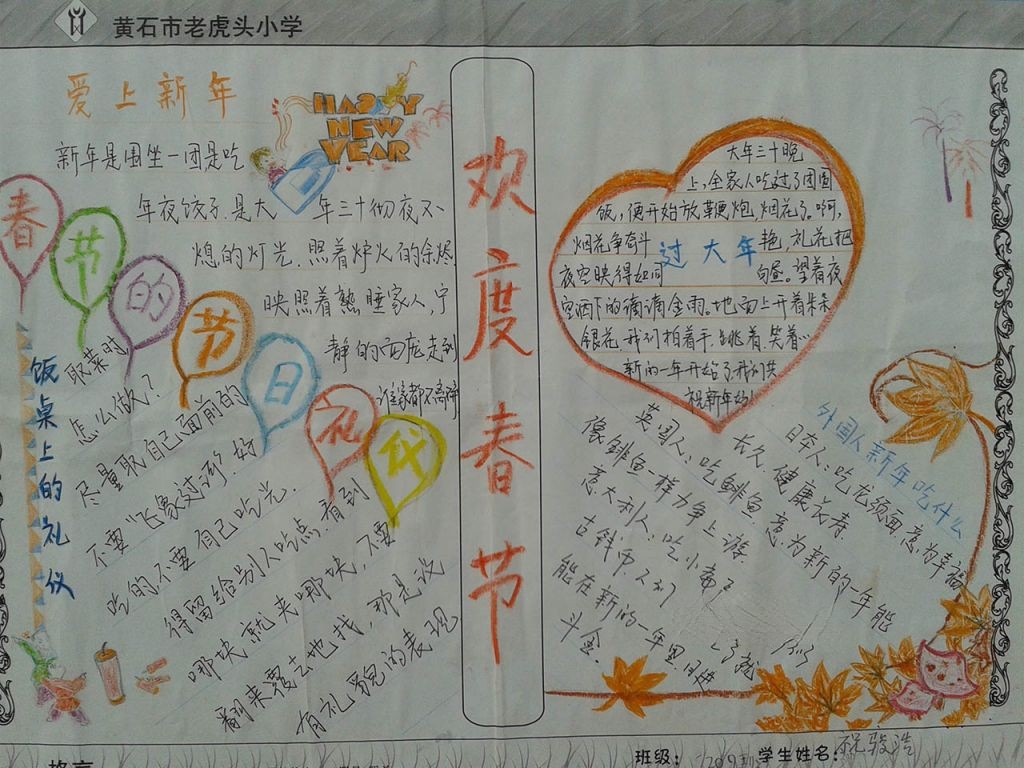 黄石市老虎头小学
爱上新年
HAPPY
NEW
YEAR
新年是围坐一团是吃
年夜饺子.是大 年三十彻夜不
熄的灯光.照着炉火的余烬
映照着熟睡家人,宁
静的面庞走到
谁家都不高呼
春节的节日礼仪
饭桌上的礼仪
取菜时
怎么做?
尽量取自己面前的
不要“飞象过河”.好
吃的不要自己吃光.
得留给别人吃点.看到
哪块就来哪块,不要
翻来覆去地找,那是没
有礼貌的表现
欢度春节
过大年
大年三十晚
上,全家人吃过了团圆
饭,便开始放鞭炮.烟花了。啊,
烟花争奇斗艳,礼花把
夜空映得如同白昼。望着夜
空洒下的滴滴金雨。地面上开着朵朵
银花.我们拍着手.跳着.笑着…
新的一年开始了我们共
祝新年好
外国人新年吃什么
日本人:吃龙须面,意为幸福
长久.健康长寿.
英国人:吃鲱鱼.意为新的一年能
像鲱鱼一样力争上游.
意大利人:吃小扁豆
古钱币.人们
能在新的一年里日进
斗金.
班级:
学生姓名:祝骏浩
格言